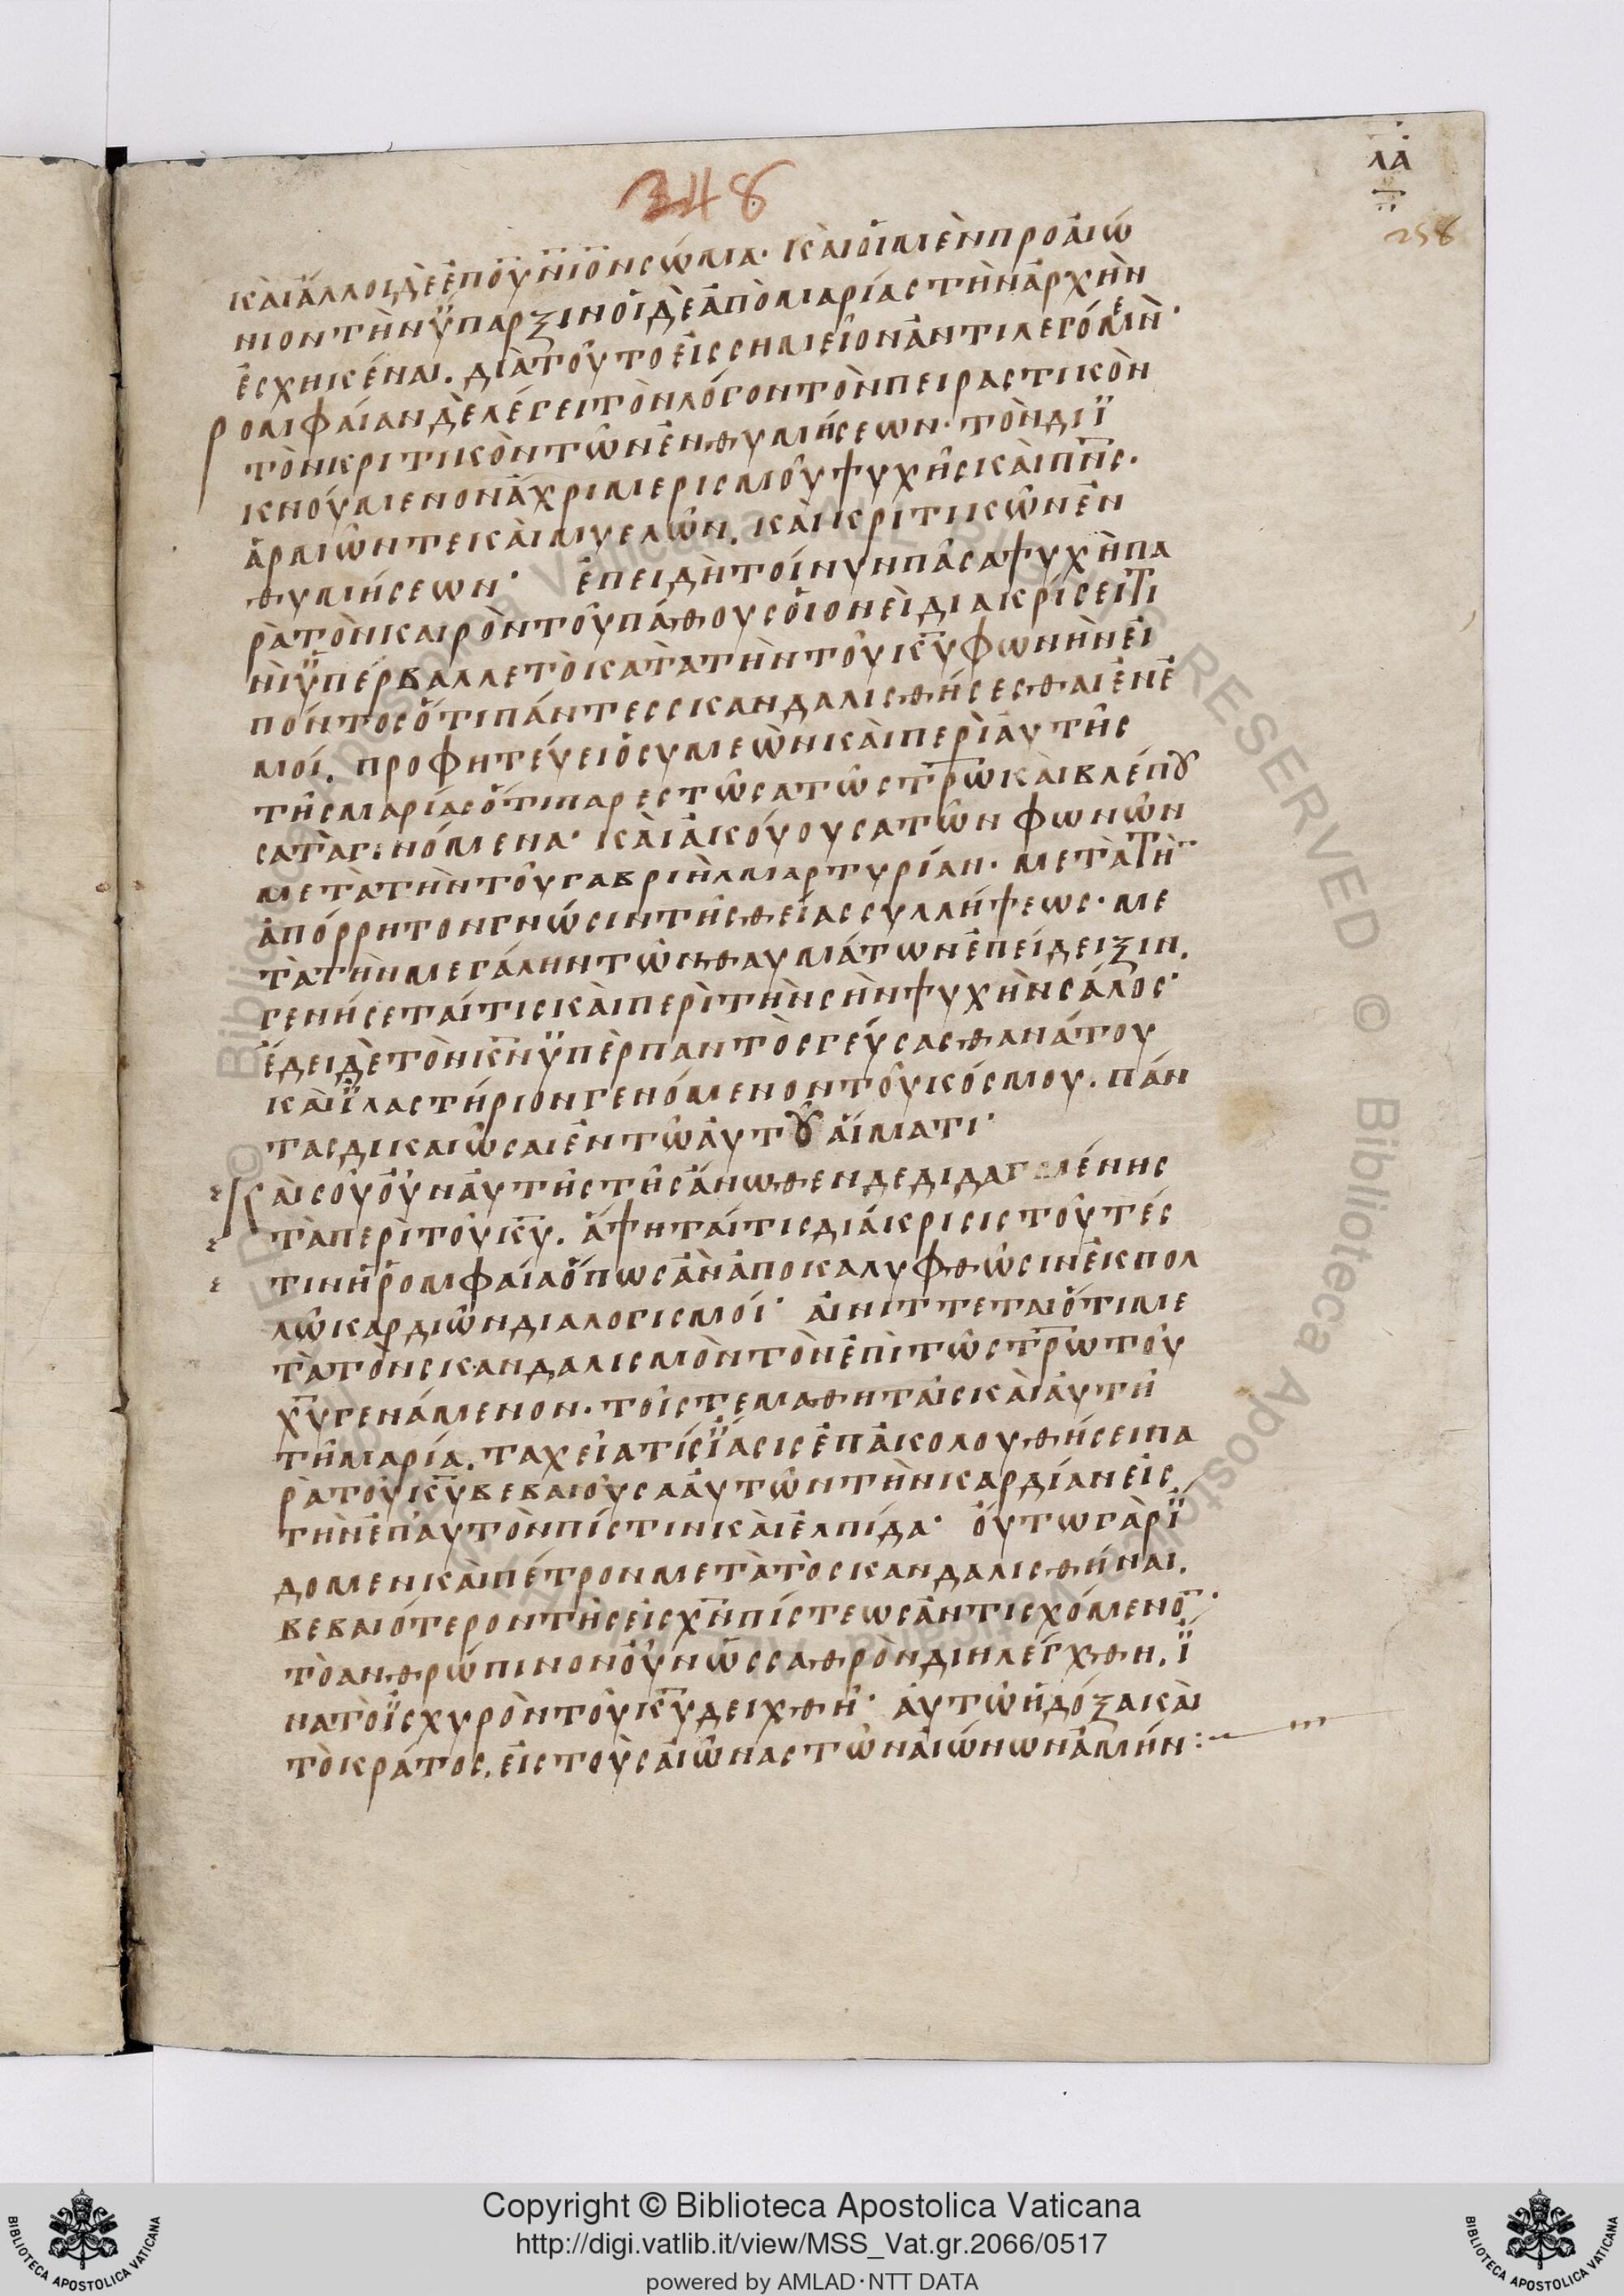 λα
348
258
καὶ ἄλλοι δὲ ἐπουνιον σῶμα· καὶ οἱ μὲν προαιώ
νιον τὴν ὕπαρξιν οἱ δὲ ἀπὸ μαρίας τὴν ἀρχὴν
ἐσχηκέναι. διὰ τοῦτο εἰς σημεῖον ἀντιλεγόμεν·
ρομφαίαν δὲ λέγει τὸν λόγον τὸν πειραστικὸν
τὸν κριτικὸν τῶν ἐνθυμήσεων· τὸν διϊ
κνούμενον ἄχρι μερισμοῦ ψυχῆς καὶ πνς·
ἁρμῶν τε καὶ μυελῶν. καὶ κριτικῶν ἐν
θυμήσεων· ἐπειδὴ τοίνυν πᾶσα ψυχὴ πα
ρὰ τὸν καιρὸν τοῦ πάθους οἱονεὶ διακρίσει τι
νὶ ὑπερβαλλετο κατὰ τὴν τοῦ κυ φωνὴν εἰ
πόντος ὅτι πάντες σκανδαλισθήσεσθαι ἐν ἐ
μοί. προφητεύει ὁ συμεὼν καὶ περὶ αὐτῆς
τῆς μαρίας ὅτι παρεστῶσα τῶ στρω καὶ βλέπου
σα τὰ γινόμενα· καὶ ἀκούουσα τῶν φωνῶν
μετὰ τὴν τοῦ γαβριὴλ μαρτυρίαν· μετὰ τὴν
ἀπόρρητον γνώσιν τῆς θείας συλλήψεως· με
τὰ τὴν μεγάλην τῶν θαυμάτων ἐπείδειξιν.
γενήσεταί τις καὶ περὶ τὴν σὴν ψυχὴν σάλος·
ἔδει δὲ τὸν κν ὑπὲρ παντὸς γεύσας θανάτου
καὶ ἱλαστήριον γενόμενον τοῦ κόσμου. πάν
τας δικαιῶσαι ἐν τῶ αὐτοῦ αἵματι·
καὶ σοῦ οὖν αὐτῆς τῆς ἄνωθεν δεδιδαγμένης
τὰ περὶ τοῦ κυ. ἅψηταί τις διάκρισις τουτέσ
τιν ἡ ρομφαία ὅπως ἂν ἀποκαλυφθῶσιν ἐκ πολ
λῶ καρδιῶν διαλογισμοί· αἰνίττεται ὅτι με
τὰ τὸν σκανδαλισμὸν τὸν ἐπὶ τῶ στρω τοῦ
χυ γενάμενον· τοῖς τε μαθηταῖς καὶ αὐτῆ
τῆ μαρία. ταχεῖα τίς ἴασις ἐπακολουθήσει πα
ρὰ τοῦ κυ βεβαιοῦσα αὐτῶν τὴν καρδίαν εἰς
τὴν ἐπ' αυτὸν πίστιν καὶ ἐλπίδα· οὕτω γὰρ ἴ
δομεν καὶ πέτρον μετὰ τὸ σκανδαλισθῆναι.
βεβαιότερον τῆς εἰς χν πίστεως ἀντισχόμενο·
τὸ ανθρώπινον οὖν ὡς σαθρὸν διηλέγχθη. ἵ
να τὸ ἰσχυρὸν τοῦ κυ δειχθῆ· αὐτῶ ἡ δόξα καὶ
τὸ κράτος. εἰς τοὺς αἰῶνας τῶν αἰώνων ἀμήν:
Copyright © Biblioteca Apostolica Vaticana
http://digi.vatlib.it/view/MSS_Vat.gr.2066/0517
powered by AMLAD·NTT DATA